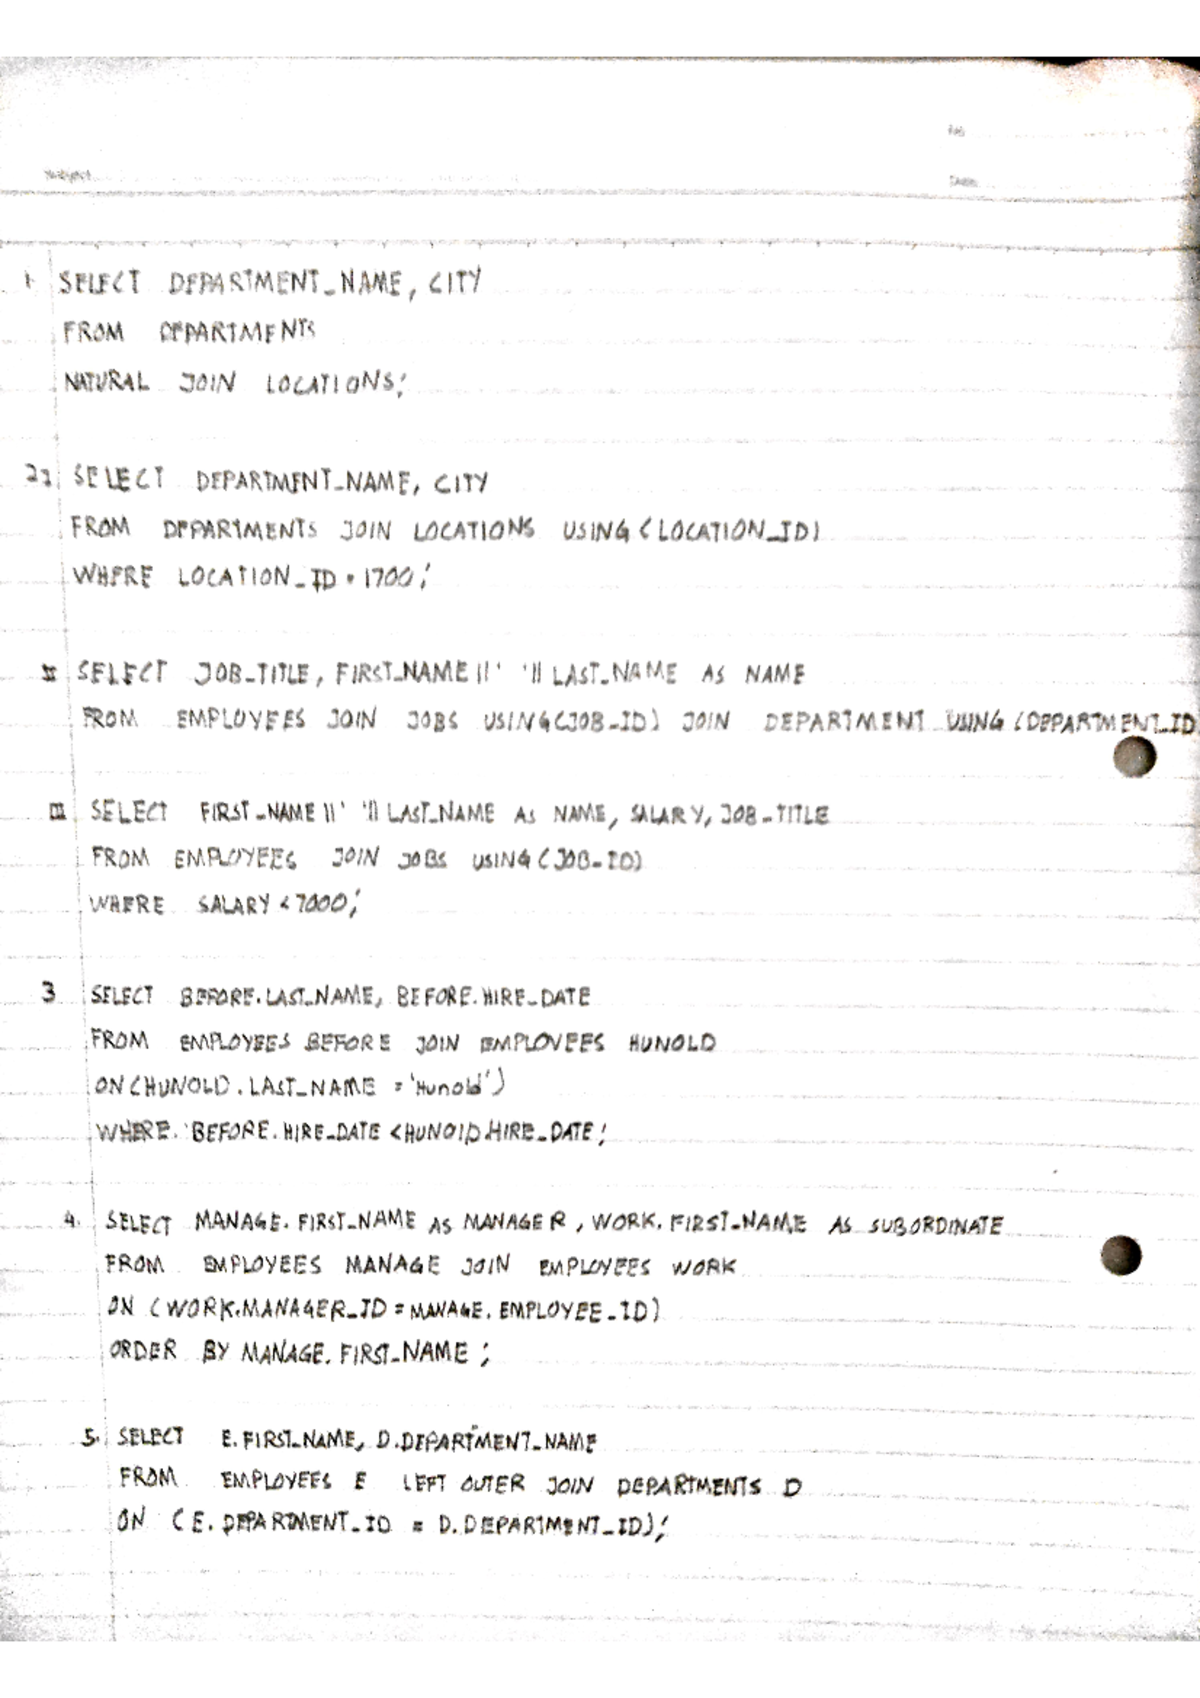 No.
Subject
Date
1. SELECT DEPARTMENT_NAME, CITY
FROM DEPARTMENTS
NATURAL JOIN LOCATIONS;
SELECT DEPARTMENT_NAME, CITY
FROM DEPARTMENTS JOIN LOCATIONS USING (LOCATION_ID)
WHERE LOCATION_ID = 1700;
II SELECT JOB_TITLE, FIRST_NAME ||' '|| LAST_NAME AS NAME
FROM EMPLOYEES JOIN JOBS USING(JOB_ID) JOIN DEPARTMENT USING (DEPARTMENT_ID
III SELECT FIRST_NAME ||' '|| LAST_NAME AS NAME, SALARY, JOB_TITLE
FROM EMPLOYEES JOIN JOBS USING (JOB_ID)
WHERE SALARY < 7000;
3 SELECT BEFORE.LAST_NAME, BEFORE.HIRE_DATE
FROM EMPLOYEES BEFORE JOIN EMPLOYEES HUNOLD
ON (HUNOLD.LAST_NAME = 'Hunold')
WHERE BEFORE.HIRE_DATE < HUNOLD.HIRE_DATE;
4. SELECT MANAGE.FIRST_NAME AS MANAGER, WORK.FIRST_NAME AS SUBORDINATE
FROM EMPLOYEES MANAGE JOIN EMPLOYEES WORK
ON (WORK.MANAGER_ID = MANAGE.EMPLOYEE_ID)
ORDER BY MANAGE.FIRST_NAME;
5. SELECT E.FIRST_NAME, D.DEPARTMENT_NAME
FROM EMPLOYEES E LEFT OUTER JOIN DEPARTMENTS D
ON (E.DEPARTMENT_ID = D.DEPARTMENT_ID);